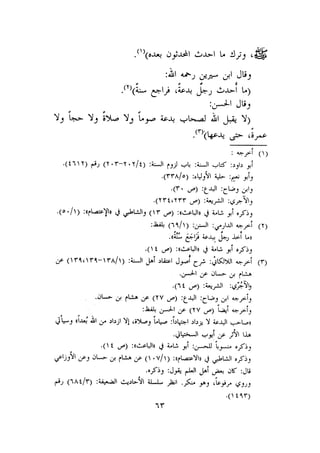 ﷺ، وترك ما احدث المحدثون بعده)(١).
وقال ابن سيرين رحمه الله:
(ما أُحدث رجلٌ بدعةً، فراجع سنةً)(٢).
وقال الحسن:
(لا يقبل الله لصحاب بدعة صوماً ولا صلاةً ولا حجاً ولا
عمرةً، حتى يدعها)(٣).
(١) أخرجه :
أبو داود: كتاب السنة: باب لزوم السنة: (٤/ ٢٠٢-٢٠٣) رقم (٤٦١٢).
وأبو نعيم: حلية الأولياء: (٥/ ٣٣٨).
وابن وضاح: البدع: (ص ٣٠).
والآجري: الشريعة: (ص ٢٣٣، ٢٣٤).
وذكره أبو شامة في «الباعث»: (ص ١٣) والشاطبي في «الإعتصام»: (١/ ٥٠).
(٢) أخرجه الدارمي: السنن: (١/ ٦٩) بلفظ:
«ما أخذ رجلٌ ببدعة فَرَاجَعَ سُنَّةً».
وذكره أبو شامة في «الباعث»: (ص ١٤).
(٣) أخرجه اللالكائيّ: شرح أُصول اعتقاد أهل السنة: (١/ ١٣٨-١٣٩، ١٣٩) عن
هشام بن حسان عن الحسن.
والآجُرِّيُ: الشريعة: (ص ٦٤).
وأخرجه ابن وضاح: البدع: (ص ٢٧) عن هشام بن حسان.
وأخرجه أيضاً (ص ٢٧) عن الحسن بلفظ:
«صاحب البدعة لا يزداد اجتهاداً: صياماً وصلاة، إلا ازداد من الله بُعداً» وسيأتي
هذا الأثر عن أيوب السختياني.
وذكره منسوباً للحسن: أبو شامة في «الباعث»: (ص ١٤).
وذكره الشاطبي في «الاعتصام»: (١/ ١٠٧) عن هشام بن حسان وعن الأوزاعي
قال: كان بعض أهل العلم يقول: وذكره.
وروي مرفوعاً، وهو منكر. انظر سلسلة الأحاديث الضعيفة: (٣/ ٦٨٤) رقم
(١٤٩٣).
٦٣